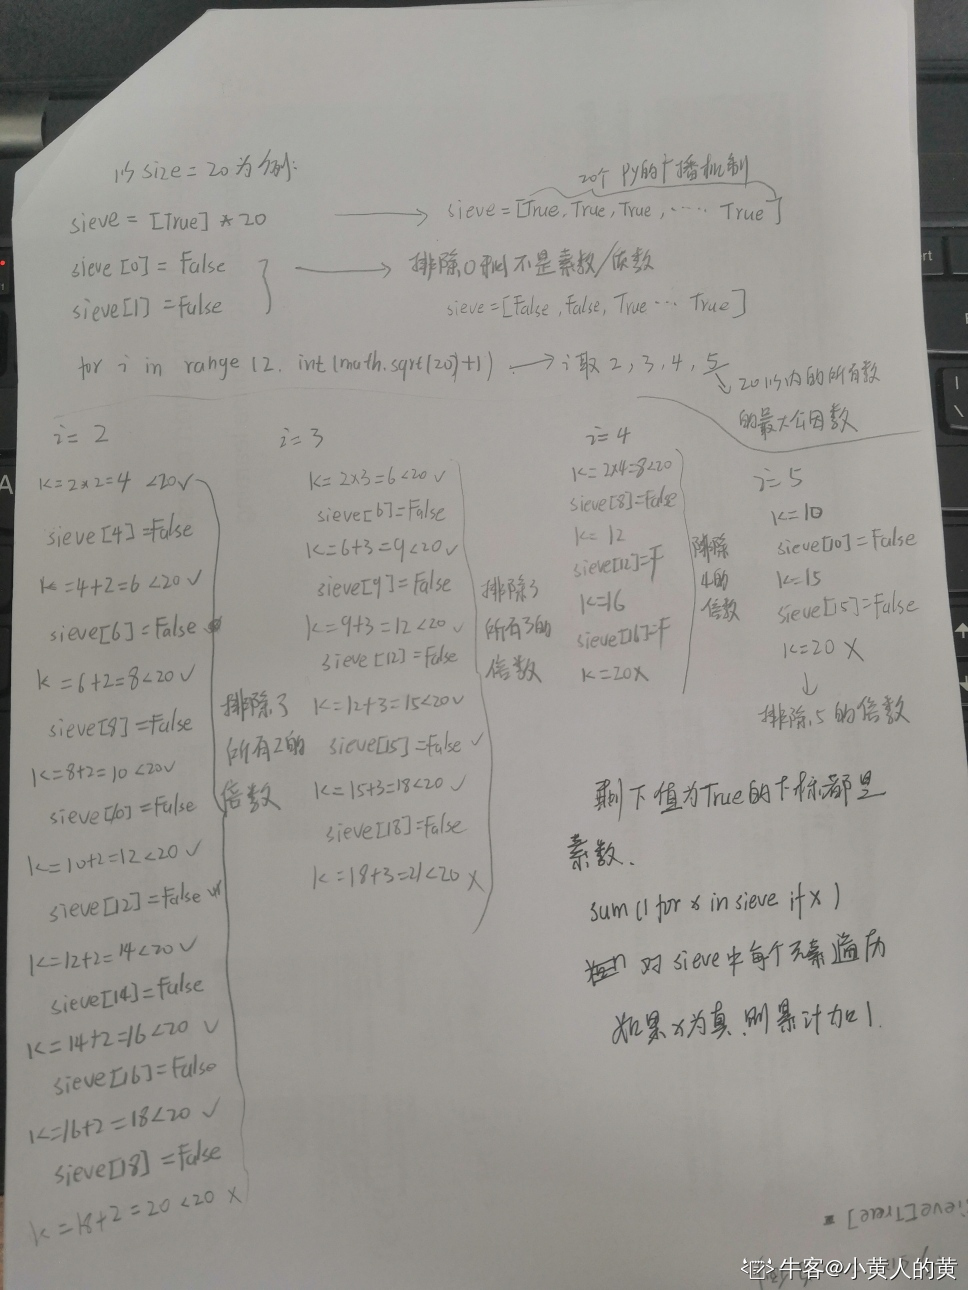 以size=20为例:
20个 py的广播机制
sieve = [True] * 20
sieve=[True, True, True, ····· True]
sieve[0] = False
sieve[1] = False
排除0和1不是素数/质数
sieve=[False, False, True ··· True]
for i in range(2, int(math.sqrt(20)+1)
i取 2, 3, 4, 5
20以内的所有数
的最大公因数
i= 2
k=2×2=4 <20✓
sieve[4]=False
k=4+2=6<20✓
sieve[6]=False
k=6+2=8<20✓
sieve[8]=False
k=8+2=10<20✓
sieve[10]=False
k=10+2=12<20✓
sieve[12]=False
k=12+2=14<20✓
sieve[14]=False
k=14+2=16<20✓
sieve[16]=False
k=16+2=18<20✓
sieve[18]=False
k=18+2=20<20×
排除了
所有2的
倍数
i=3
k=2×3=6<20✓
sieve[6]=False
k=6+3=9<20✓
sieve[9]=False
k=9+3=12<20✓
sieve[12]=False
k=12+3=15<20✓
sieve[15]=False✓
k=15+3=18<20✓
sieve[18]=False
k=18+3=21<20×
排除了
所有3的
倍数
i=4
k=2×4=8<20
sieve[8]=False
k=12
sieve[12]=F
k=16
sieve[16]=F
k=20×
排除
4的
倍数
i=5
k=10
sieve[10]=False
k=15
sieve[15]=False
k=20×
排除5的倍数
剩下值为True的下标都是
素数.
sum(1 for x in sieve if x)
对sieve中每个元素遍历
如果x为真,则累计加1.
sieve[True] *
牛客@小黄人的黄